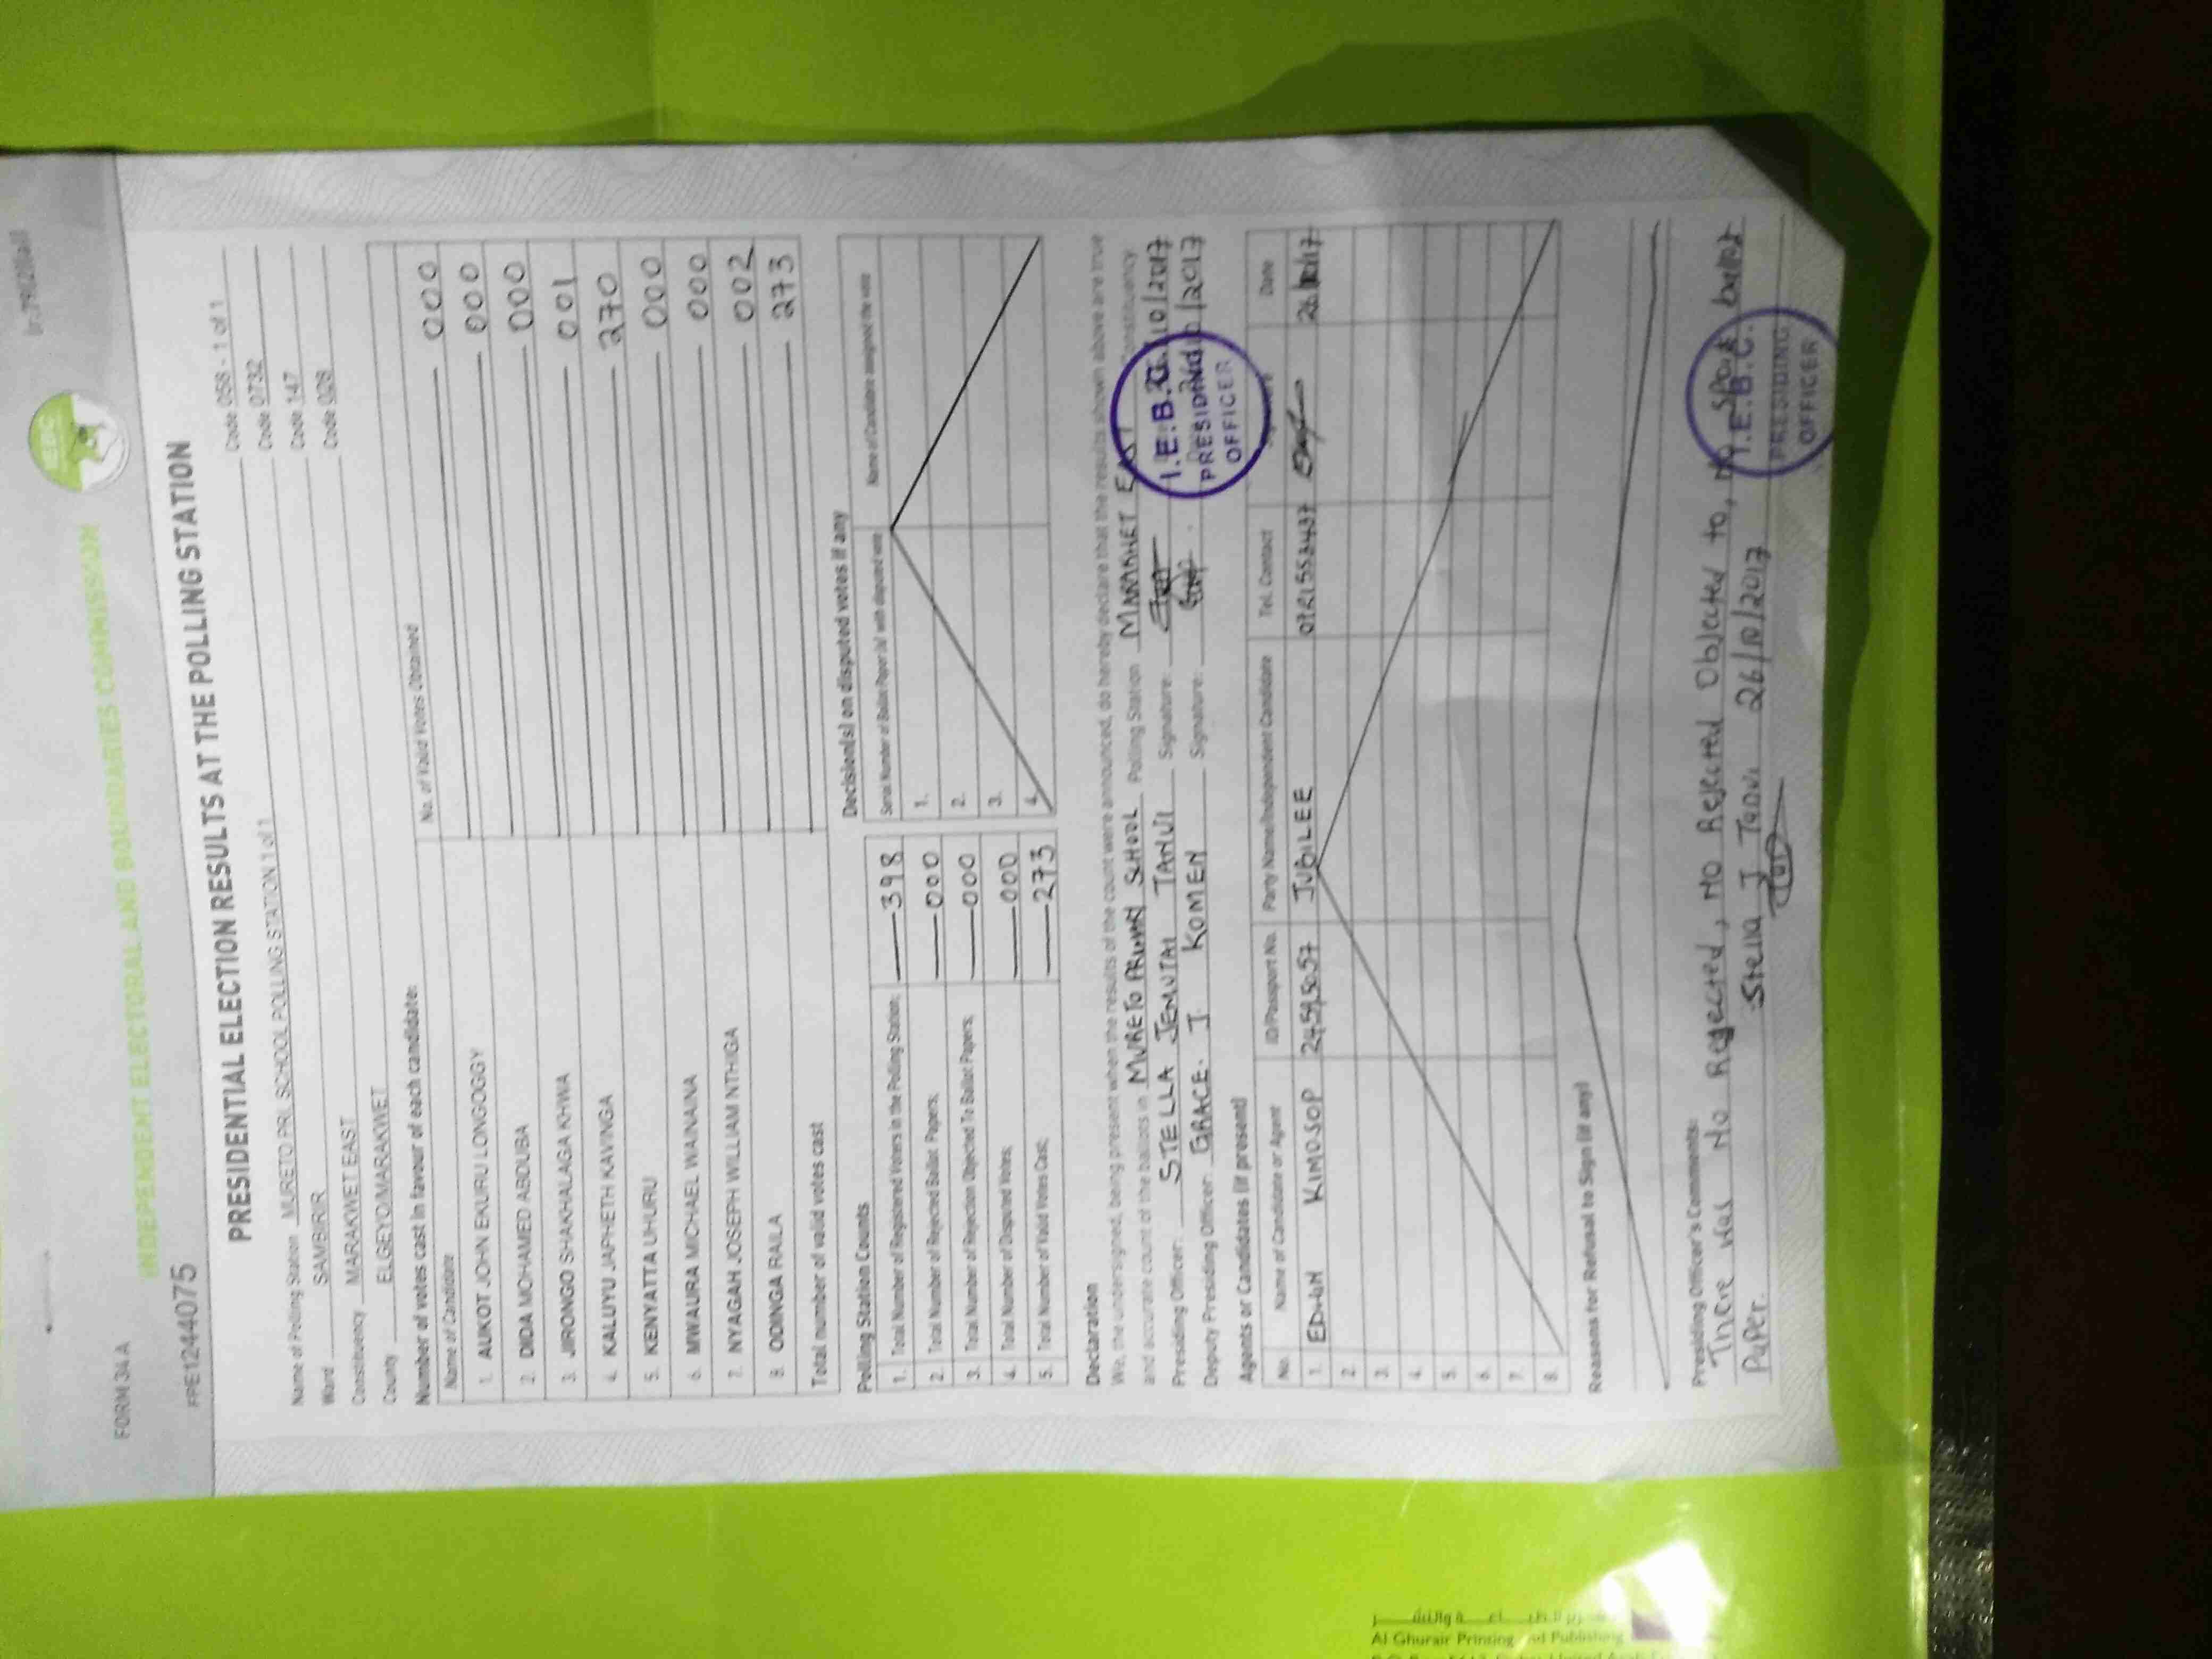 FORM 34A
INDEPENDENT ELECTORAL AND BOUNDARIES COMMISSION
IEBC
PPE1244075
PRESIDENTIAL ELECTION RESULTS AT THE POLLING STATION
Name of Polling Station MURETO PRI. SCHOOL POLLING STATION 1 of 1 Code 056 - 1 of 1
Ward SAMBIRIR Code 0732
Constituency MARAKWET EAST Code 147
County ELGEYO/MARAKWET Code 028
Number of votes cast in favour of each candidate:
Name of Candidate No. of Valid Votes Obtained
1. AUKOT JOHN EKURU LONGOGGY 000
2. DIDA MOHAMED ABDUBA 000
3. JIRONGO SHAKHALAGA KHWA 000
4. KALUYU JAPHETH KAVINGA 001
5. KENYATTA UHURU 270
6. MWAURA MICHAEL WAINAINA 000
7. NYAGAH JOSEPH WILLIAM NTHIGA 000
8. ODINGA RAILA 002
Total number of valid votes cast 273
Polling Station Counts
1. Total Number of Registered Voters in the Polling Station; 398
2. Total Number of Rejected Ballot Papers; 000
3. Total Number of Rejection Objected To Ballot Papers; 000
4. Total Number of Disputed Votes; 000
5. Total Number of Valid Votes Cast; 273
Decision(s) on disputed votes if any
Serial Number of Ballot Paper (s) with disputed vote Name of Candidate assigned the vote
1.
2.
3.
4.
Declaration
We, the undersigned, being present when the results of the count were announced, do hereby declare that the results shown above are true
and accurate count of the ballots in MURETO PRIMARY SCHOOL Polling Station MARAKWET EAST Constituency
Presiding Officer: STELLA JEMUTAI TANUI Signature: 10/2017
Deputy Presiding Officer: GRACE. J. KOMEN Signature: /2017
I.E.B.C.
PRESIDING
OFFICER
Agents or Candidates (if present)
No. Name of Candidate or Agent ID/Passport No. Party Name/Independent Candidate Tel. Contact Date
1. KIMOSOP 24595057 JUBILEE 26/10/17
2.
3.
4.
5.
6.
7.
8.
Reasons for Refusal to Sign (if any)
Presiding Officer's Comments:
There was No Rejected, no Rejected Objected to, no Spoilt ballot
Paper. Stella J Tanui 26/10/2017
I.E.B.C.
PRESIDING
OFFICER
Al Ghurair Printing and Publishing